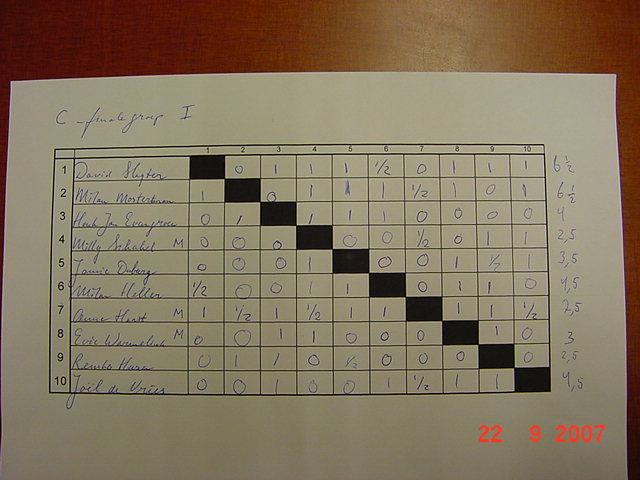 C-finalegroep I
1 2 3 4 5 6 7 8 9 10
1 David Slagter 0 1 1 1 1/2 0 1 1 1 6 1/2
2 Milan Mosterdman 1 0 1 1 1 1/2 1 0 1 6 1/2
3 Jan 0 1 1 1 1 0 0 0 0 4
4 Milly Schabel M 0 0 0 0 0 1/2 0 1 1 2,5
5 Jamie 0 0 0 1 0 0 1 1/2 1 3,5
6 Milan Heller 1/2 0 0 1 1 0 1 1 0 4,5
7 Anne Haast M 1 1/2 1 1/2 1 1 1 1 1/2
8 Evie M 0 0 1 1 0 0 0 1 0 3
9 Remko 0 1 1 0 1/2 0 0 0 0 2,5
10 Joël de Vries 0 0 1 0 0 1 1/2 1 1 4,5
22 9 2007